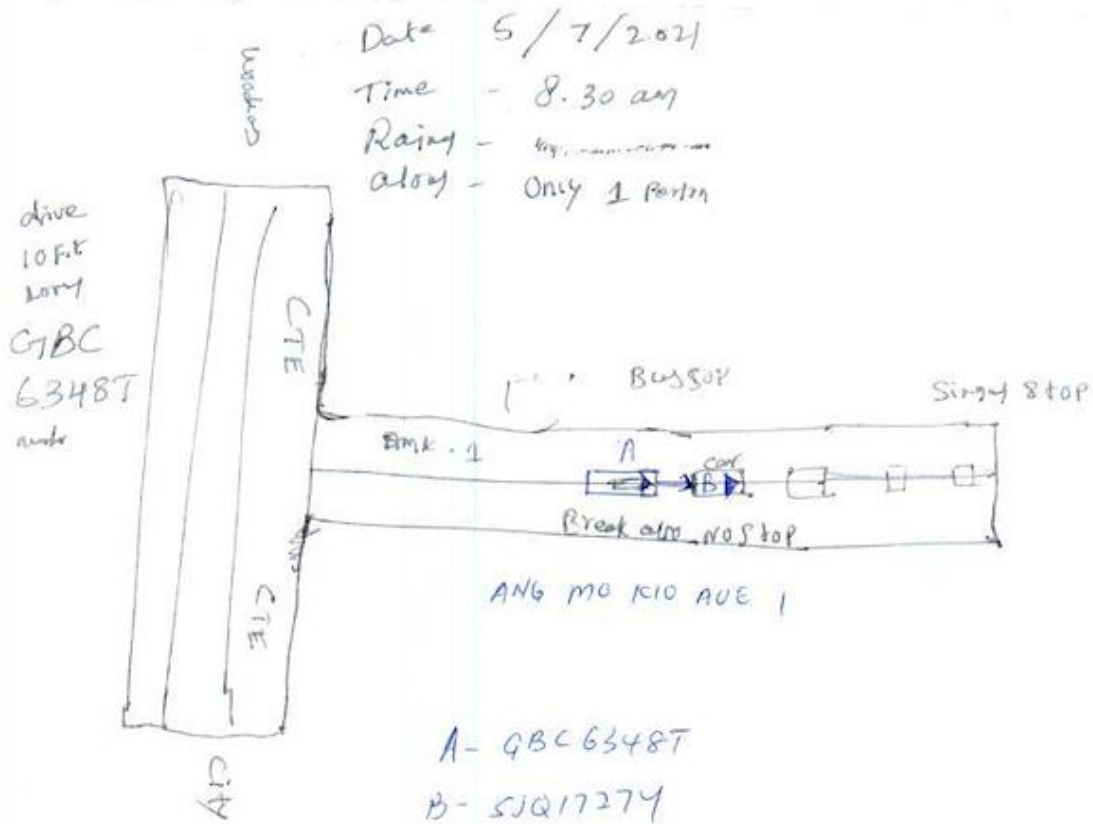 Date 5/7/2021
Time - 8.30 am
Rainy -
along - Only 1 Person
drive
10 F.t
Lorry
GBC
6348T
CTE
Busstop
Singal Stop
AMK . 1
A
car
B
Break also No Stop
CTE
ANG MO KIO AVE 1
City
A - GBC6348T
B - SJQ1727Y